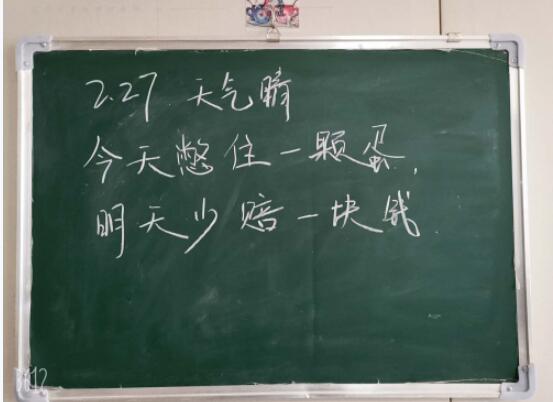 2.27 天气晴
今天憋住一颗蛋,
明天少赔一块钱